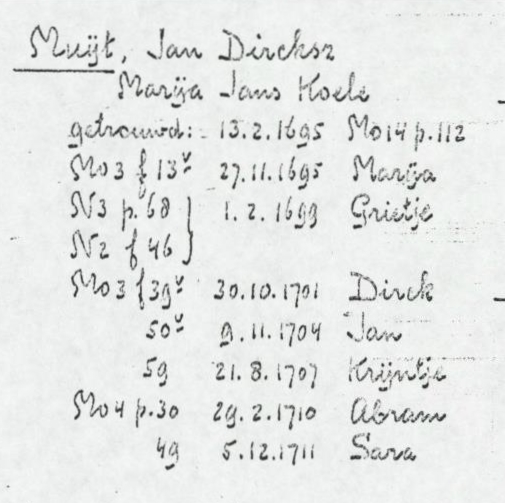 Muÿt, Jan Dircksz
Marÿa Jans Koele
getrouwd: 13.2.1695 Mo14 p.112
Mo3 f 13v 27.11.1695 Marÿa
N3 p.68 } 1.2.1699 Grietje
N2 f 46
Mo3 f 39v 30.10.1701 Dirck
50v 9.11.1704 Jan
59 21.8.1707 Krÿntje
Mo4 p.30 29.2.1710 Abram
49 5.12.1711 Sara